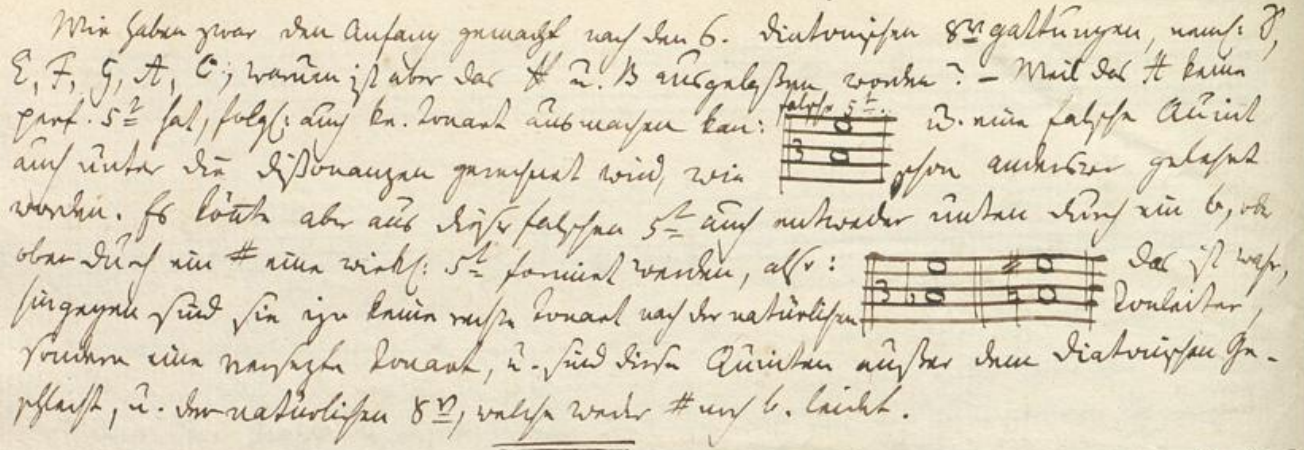 Wir haben zwar den Anfang gemacht nach den 6. diatonischen 8v gattungen, neml: D,
E, F, G, A, C; warum ist aber das H u. B ausgelaßen worden? – Weil das H keine
perf. 5t hat, folgl: auch kn. Tonart ausmachen kan: falsche 5t. u. eine falsche Quint
auch unter die Dißonanzen gerechnet wird, wie schon anderswo gelehrt
worden. Es könte aber aus dieser falschen 5t auch entweder unten durch ein b, od.
oben durch ein # eine wirkl: 5t formiret werden, als: das ist wahr,
hingegen sind sie keine rechte Tonart nach der natürlichen Tonleiter,
sondern eine versezte Tonart, u. sind diese Quinten außer dem diatonischen Ge-
schlecht, u. der natürlichen 8v, welche weder # noch b. leidet.